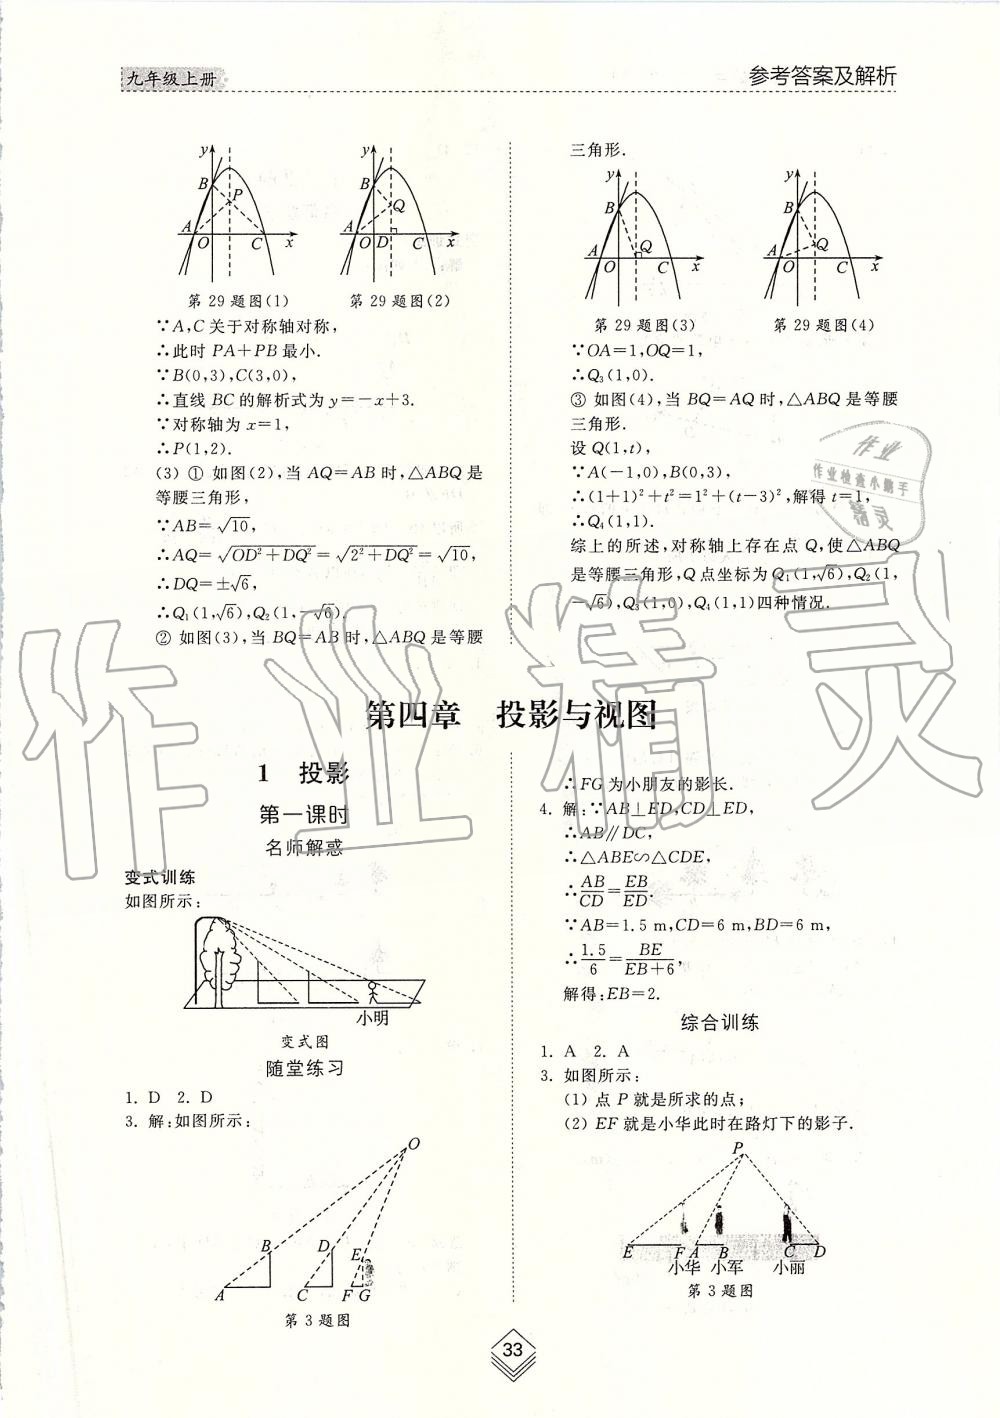 九年级上册
参考答案及解析
y
B
P
A
O
C
x
第29题图(1)
y
B
Q
A
O
D
C
x
第29题图(2)
∵A,C关于对称轴对称,
∴此时PA+PB最小.
∵B(0,3),C(3,0),
∴直线BC的解析式为y=-x+3.
∵对称轴为x=1,
∴P(1,2).
(3) ① 如图(2),当AQ=AB时,△ABQ是
等腰三角形,
∵AB=√10,
∴AQ=√(OD²+DQ²)=√(2²+DQ²)=√10,
∴DQ=±√6,
∴Q₁(1,√6),Q₂(1,-√6).
② 如图(3),当BQ=AB时,△ABQ是等腰
三角形.
y
B
Q
A
O
C
x
第29题图(3)
y
B
Q
A
O
C
x
第29题图(4)
∵OA=1,OQ=1,
∴Q₃(1,0).
③ 如图(4),当BQ=AQ时,△ABQ是等腰
三角形.
设Q(1,t),
∵A(-1,0),B(0,3),
∴(1+1)²+t²=1²+(t-3)²,解得t=1,
∴Q₄(1,1).
综上的所述,对称轴上存在点Q,使△ABQ
是等腰三角形,Q点坐标为Q₁(1,√6),Q₂(1,
-√6),Q₃(1,0),Q₄(1,1)四种情况.
作业
作业检查小鹏手
精灵
作业精灵
第四章 投影与视图
1 投影
第一课时
名师解惑
变式训练
如图所示:
小明
变式图
随堂练习
1. D 2. D
3. 解:如图所示:
O
B
D
E
A
C
F G
第3题图
∴FG为小朋友的影长.
4. 解:∵AB⊥ED,CD⊥ED,
∴AB∥DC,
∴△ABE∽△CDE,
∴AB/CD=EB/ED.
∵AB=1.5 m,CD=6 m,BD=6 m,
∴1.5/6=BE/(EB+6),
解得:EB=2.
综合训练
1. A 2. A
3. 如图所示:
(1) 点P就是所求的点;
(2) EF就是小华此时在路灯下的影子.
P
E F A B C D
小华 小军 小丽
第3题图
33